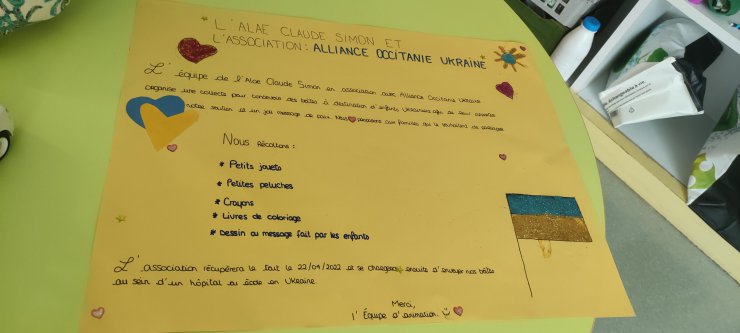 L'ALAE CLAUDE SIMON ET
L'ASSOCIATION: ALLIANCE OCCITANIE UKRAINE
L'équipe de l'Alae Claude Simon en association avec Alliance Occitanie Ukraine
organise une collecte pour concevoir des boîtes à destination d'enfants Ukrainiens afin de leur apporter
notre soutien et un joli message de paix. Nous proposons aux familles qui le souhaitent de
Nous Récoltons :
* Petits jouets
* Petites peluches
* Crayons
* Livres de coloriage
* Dessin ou message fait par les enfants
L'association récupérera le tout le 22/04/2022 et se chargera ensuite d'envoyer nos boîtes
au sein d'un hôpital ou école en Ukraine.
Merci,
l'Équipe d'animation.